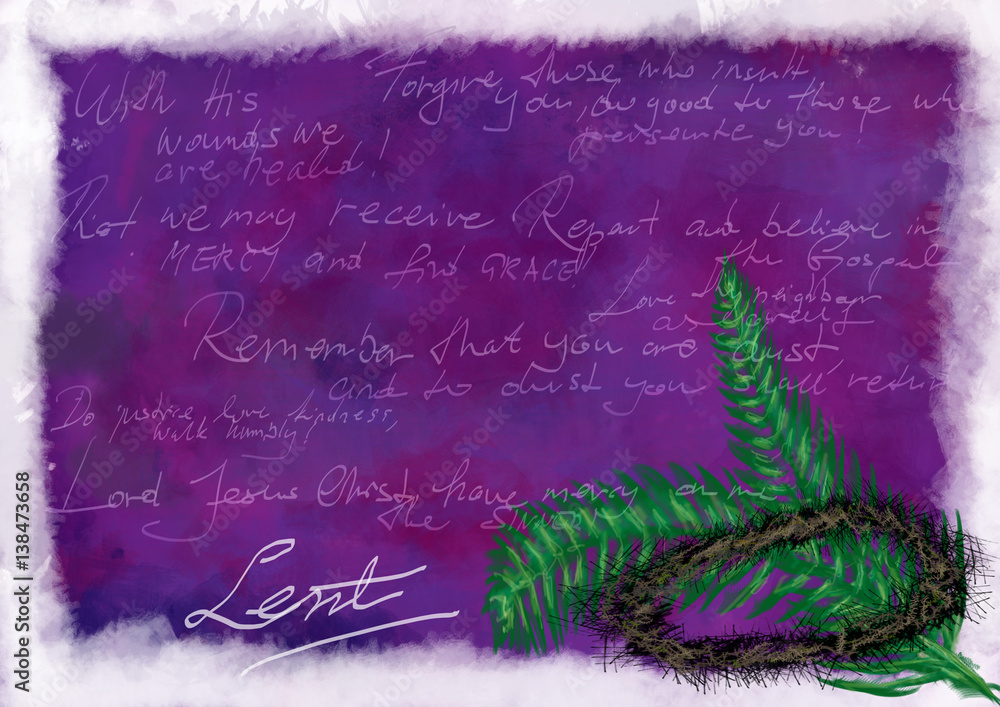 With His
wounds we
are healed!
Forgive those who insult
you, do good to those who
persecute you!
That we may receive
MERCY and find GRACE!
Repent and believe in
the Gospel
Love thy neighbour
as yourself
Remember that you are dust
and to dust you shall return
Do justice, love kindness,
walk humbly!
Lord Jesus Christ, have mercy on me
the sinner
Lent
Adobe Stock | #138473658